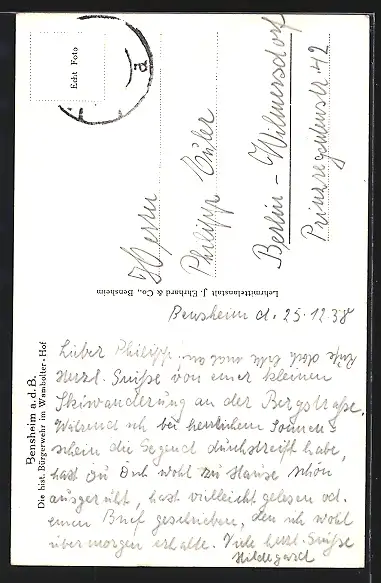 Bensheim a. d. B.
Die hist. Bürgerwehr im Wambolter-Hof
Echt Foto
Lehrmittelanstalt J. Ehrhard & Co., Bensheim
Herrn
Philipp Euler
Berlin-Wilmersdorf
Prinzregentenstr. 42
Bensheim d. 25.12 38
Lieber Philipp,
Herzl. Grüße von einer kleinen
Skiwanderung an der Bergstraße.
Während ich bei herrlichem Sonnen-
schein die Gegend durchstreift habe,
hast Du Dich wohl zu Hause schön
ausgeruht, hast vielleicht gelesen od.
einen Brief geschrieben, den ich wohl
übermorgen erhalte. Viele herzl. Grüße
Hildegard